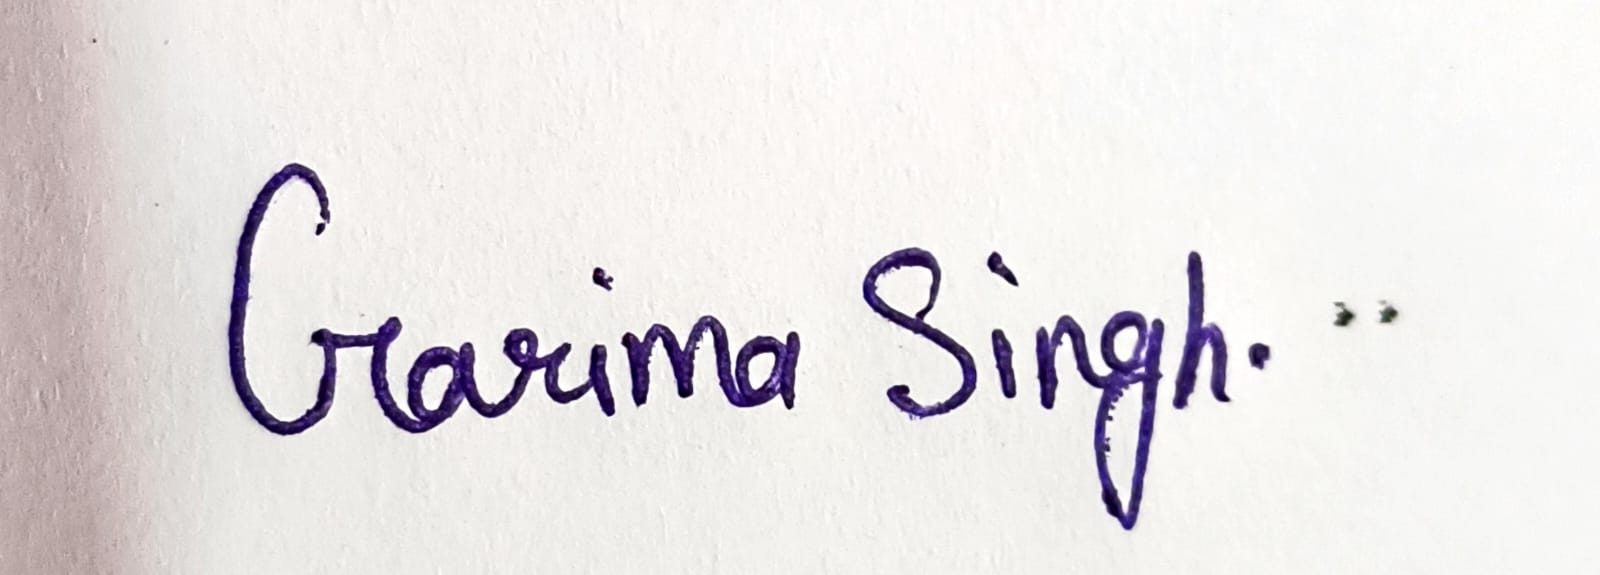 Garima Singh.